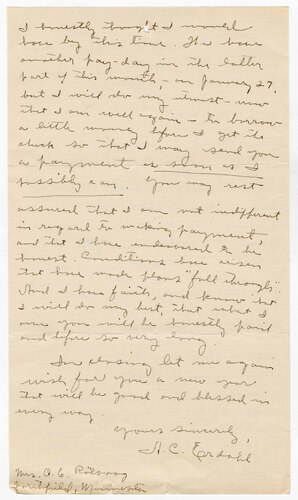 I honestly thought I would
have by this time. We have
another pay-day in the latter
part of this month, - on January 27,
but I will do my utmost - now
that I am well again - to borrow
a little money before I get its
check so that I may send you
a payment as soon as I
possibly can. You may rest
assured that I am not indifferent
in regard to making payment,
and that I have endeavored to be
honest. Conditions have arisen
that have made plans "fall through."
And I have faith, and know that
I will do my best, that what I
owe you will be honestly paid
and before so very long.
In closing let me again
wish for you a new year
that will be good and blessed in
every way.
Yours sincerely,
H. C. Erdahl
Mrs. O. E.
Northfield, Minnesota